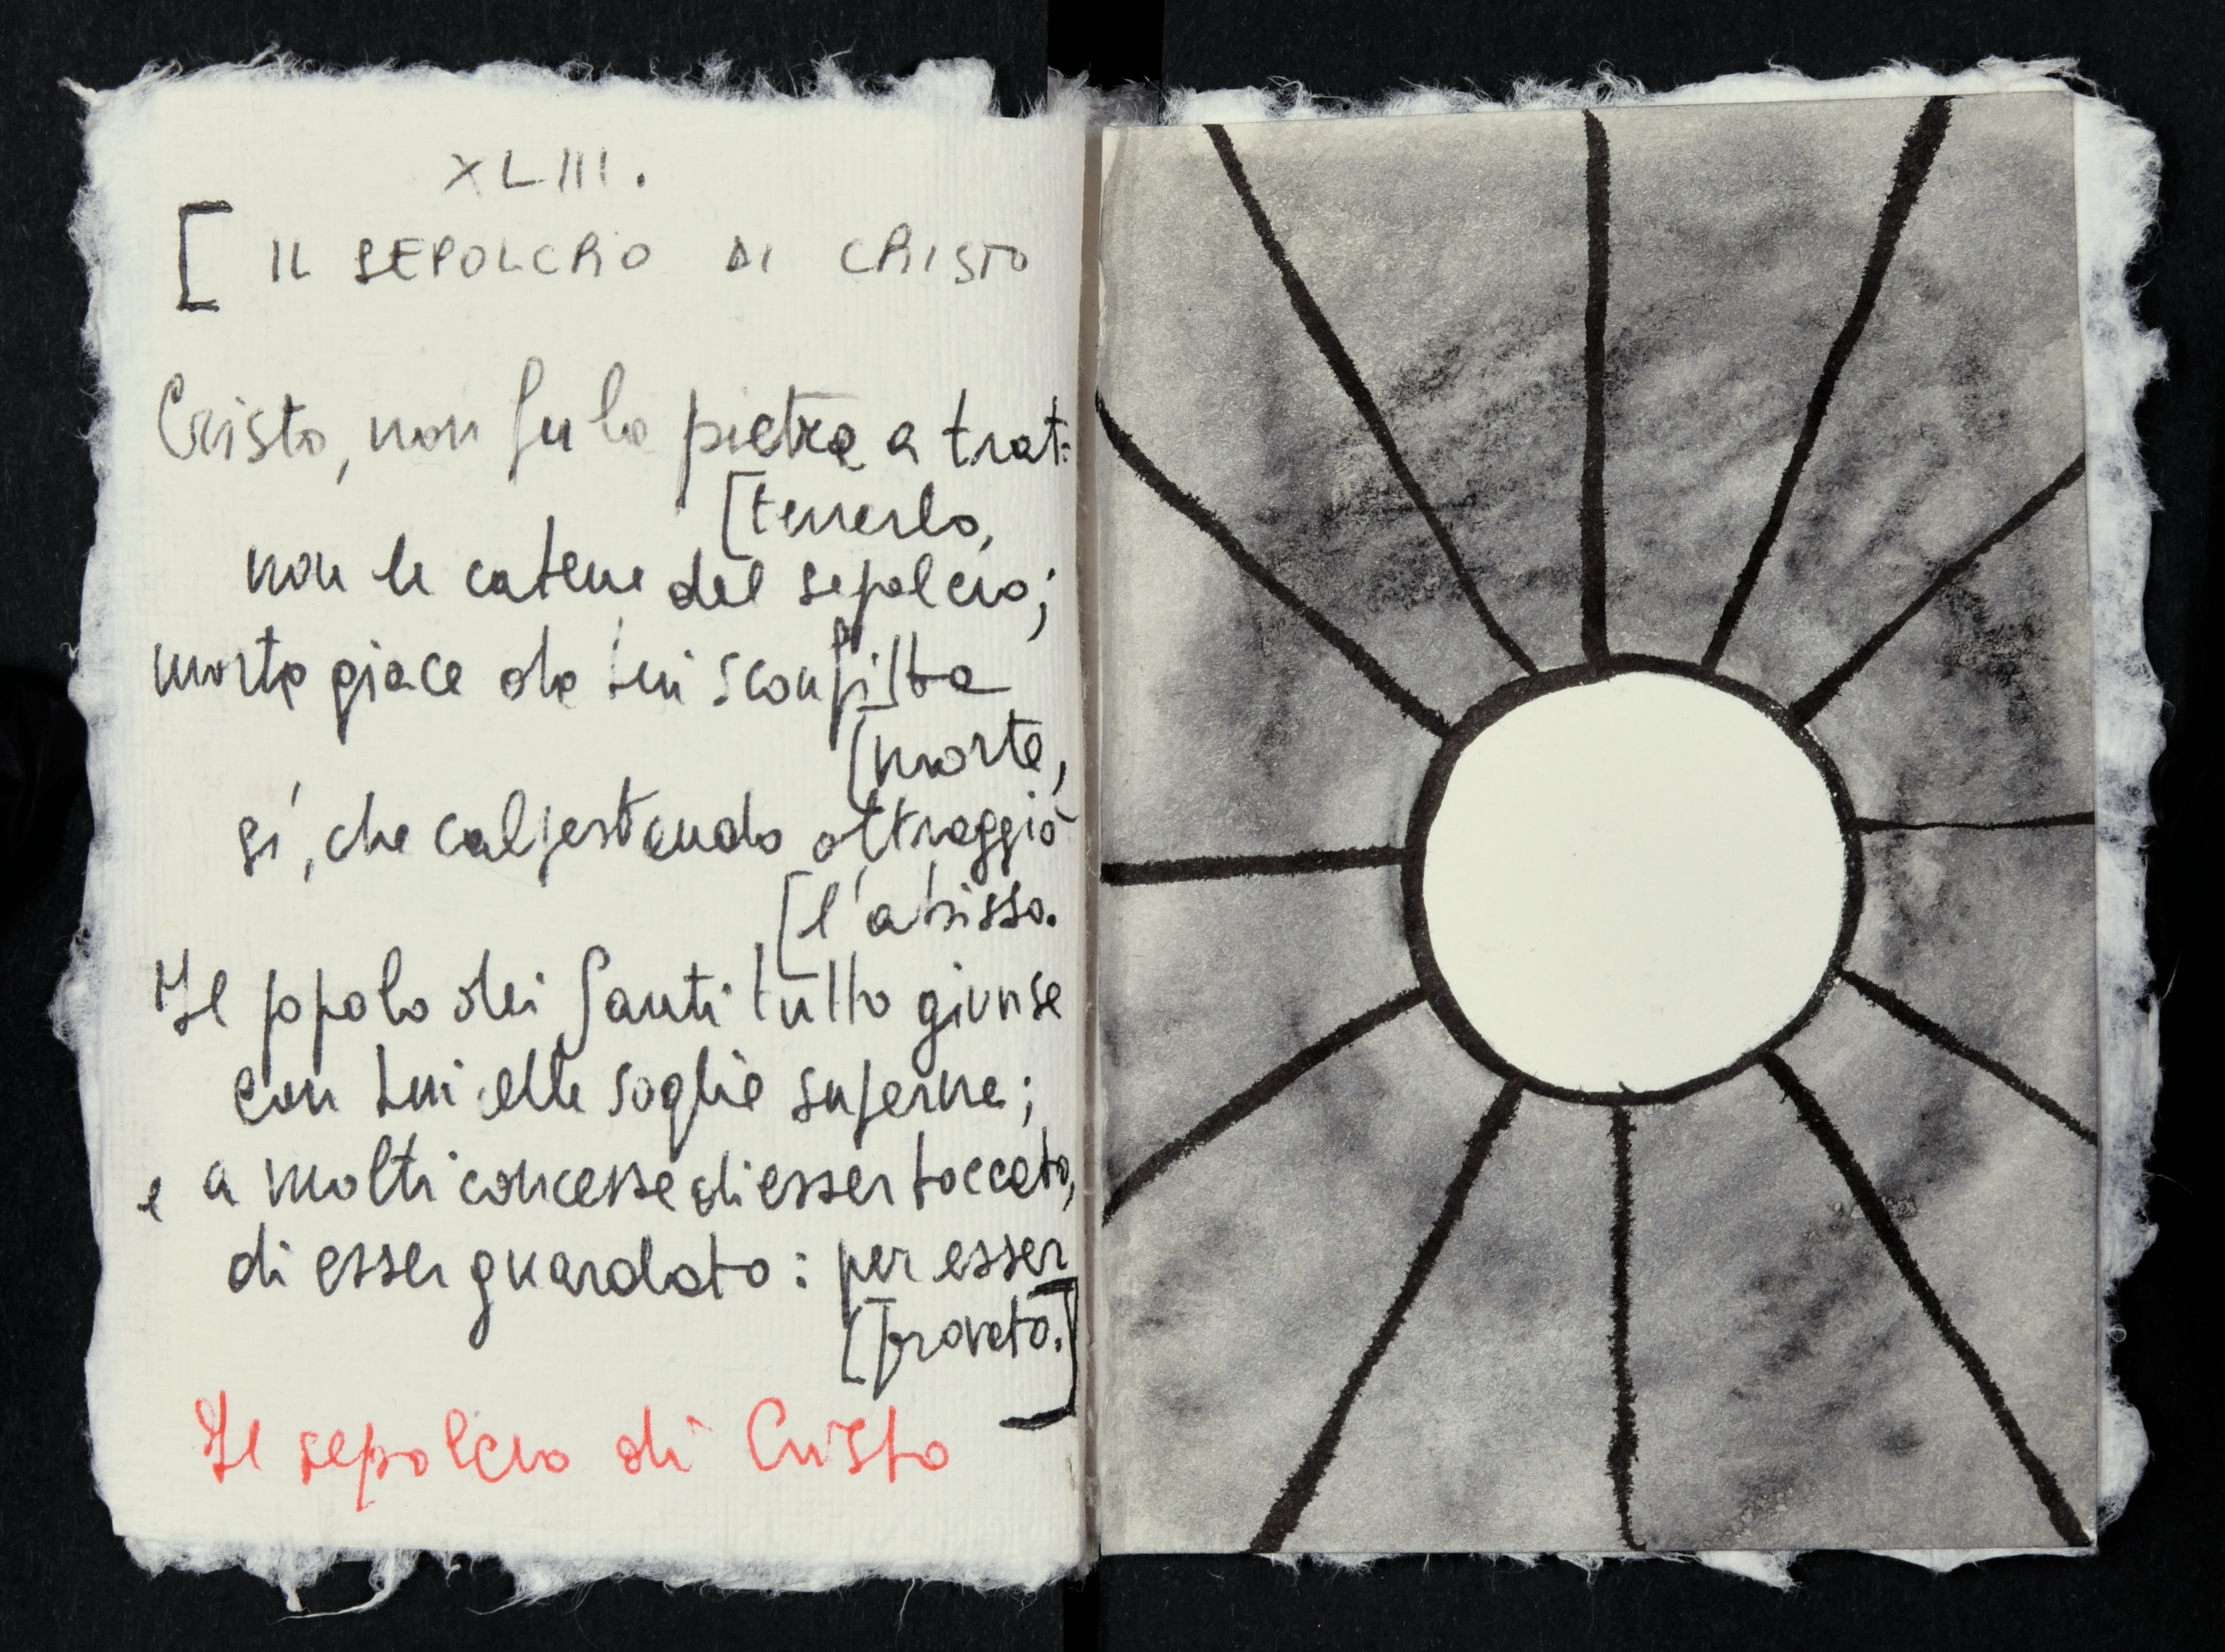 XLIII.
[ IL SEPOLCRO DI CRISTO
Cristo, non fu la pietra a trat:
[tenerlo,
non le catene del sepolcro;
morta giace da Lui sconfitta
[morte,
sí, che calpestando oltraggiò
[l'abisso.
Il popolo dei Santi tutto giunse
con Lui alle soglie superne;
e a molti concesse di esser toccato,
di esser guardato: per esser
[provato.]
Il sepolcro di Cristo